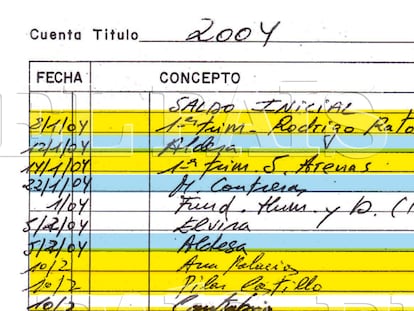 Cuenta Titulo 2004
FECHA CONCEPTO
SALDO INICIAL
8/1/04 1er trim - Rodrigo Rato
12/1/04 Aldesa
14/1/04 1er trim J. Arenas
22/1/04 M. Contreras
1/04 Fund. Hum. y D. (
5/2/04 Elvira
5/2/04 Aldesa
10/2 Ana Palacios
10/2 Pilar Castillo
10/2 Cantabria
EL PAÍS